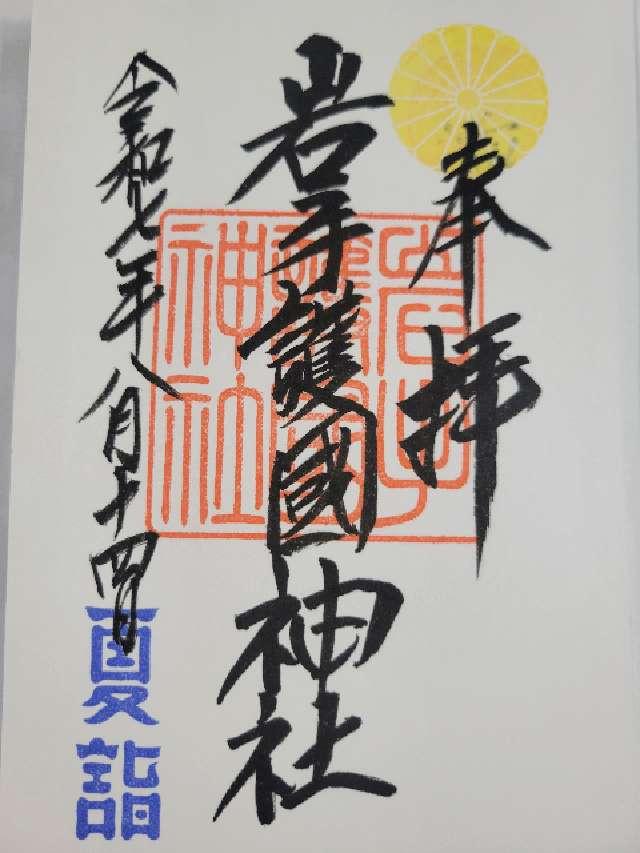 奉拝
岩手護國神社
岩手護國神社
令和七年八月十四日
夏詣